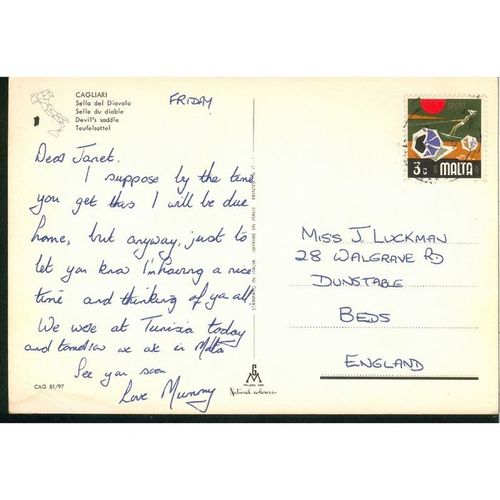 CAGLIARI
Sella del Diavolo
Selle du diable
Devil's saddle
Teufelsattel
FRIDAY
Dear Janet.
I suppose by the time
you get this I will be due
home, but anyway, just to
let you know I'm having a nice
time and thinking of ya all
We were at Tunisia today
and tomorrow we are in Malta
See you soon
Love Mummy
CAG 81/97
STAMPATO IN ITALIA IMPRIME EN ITALIE PRINTED IN
GM
MILANO
Natural colours
SPORT
3c MALTA
MISS J. LUCKMAN
28 WALGRAVE RD
DUNSTABLE
BEDS
ENGLAND